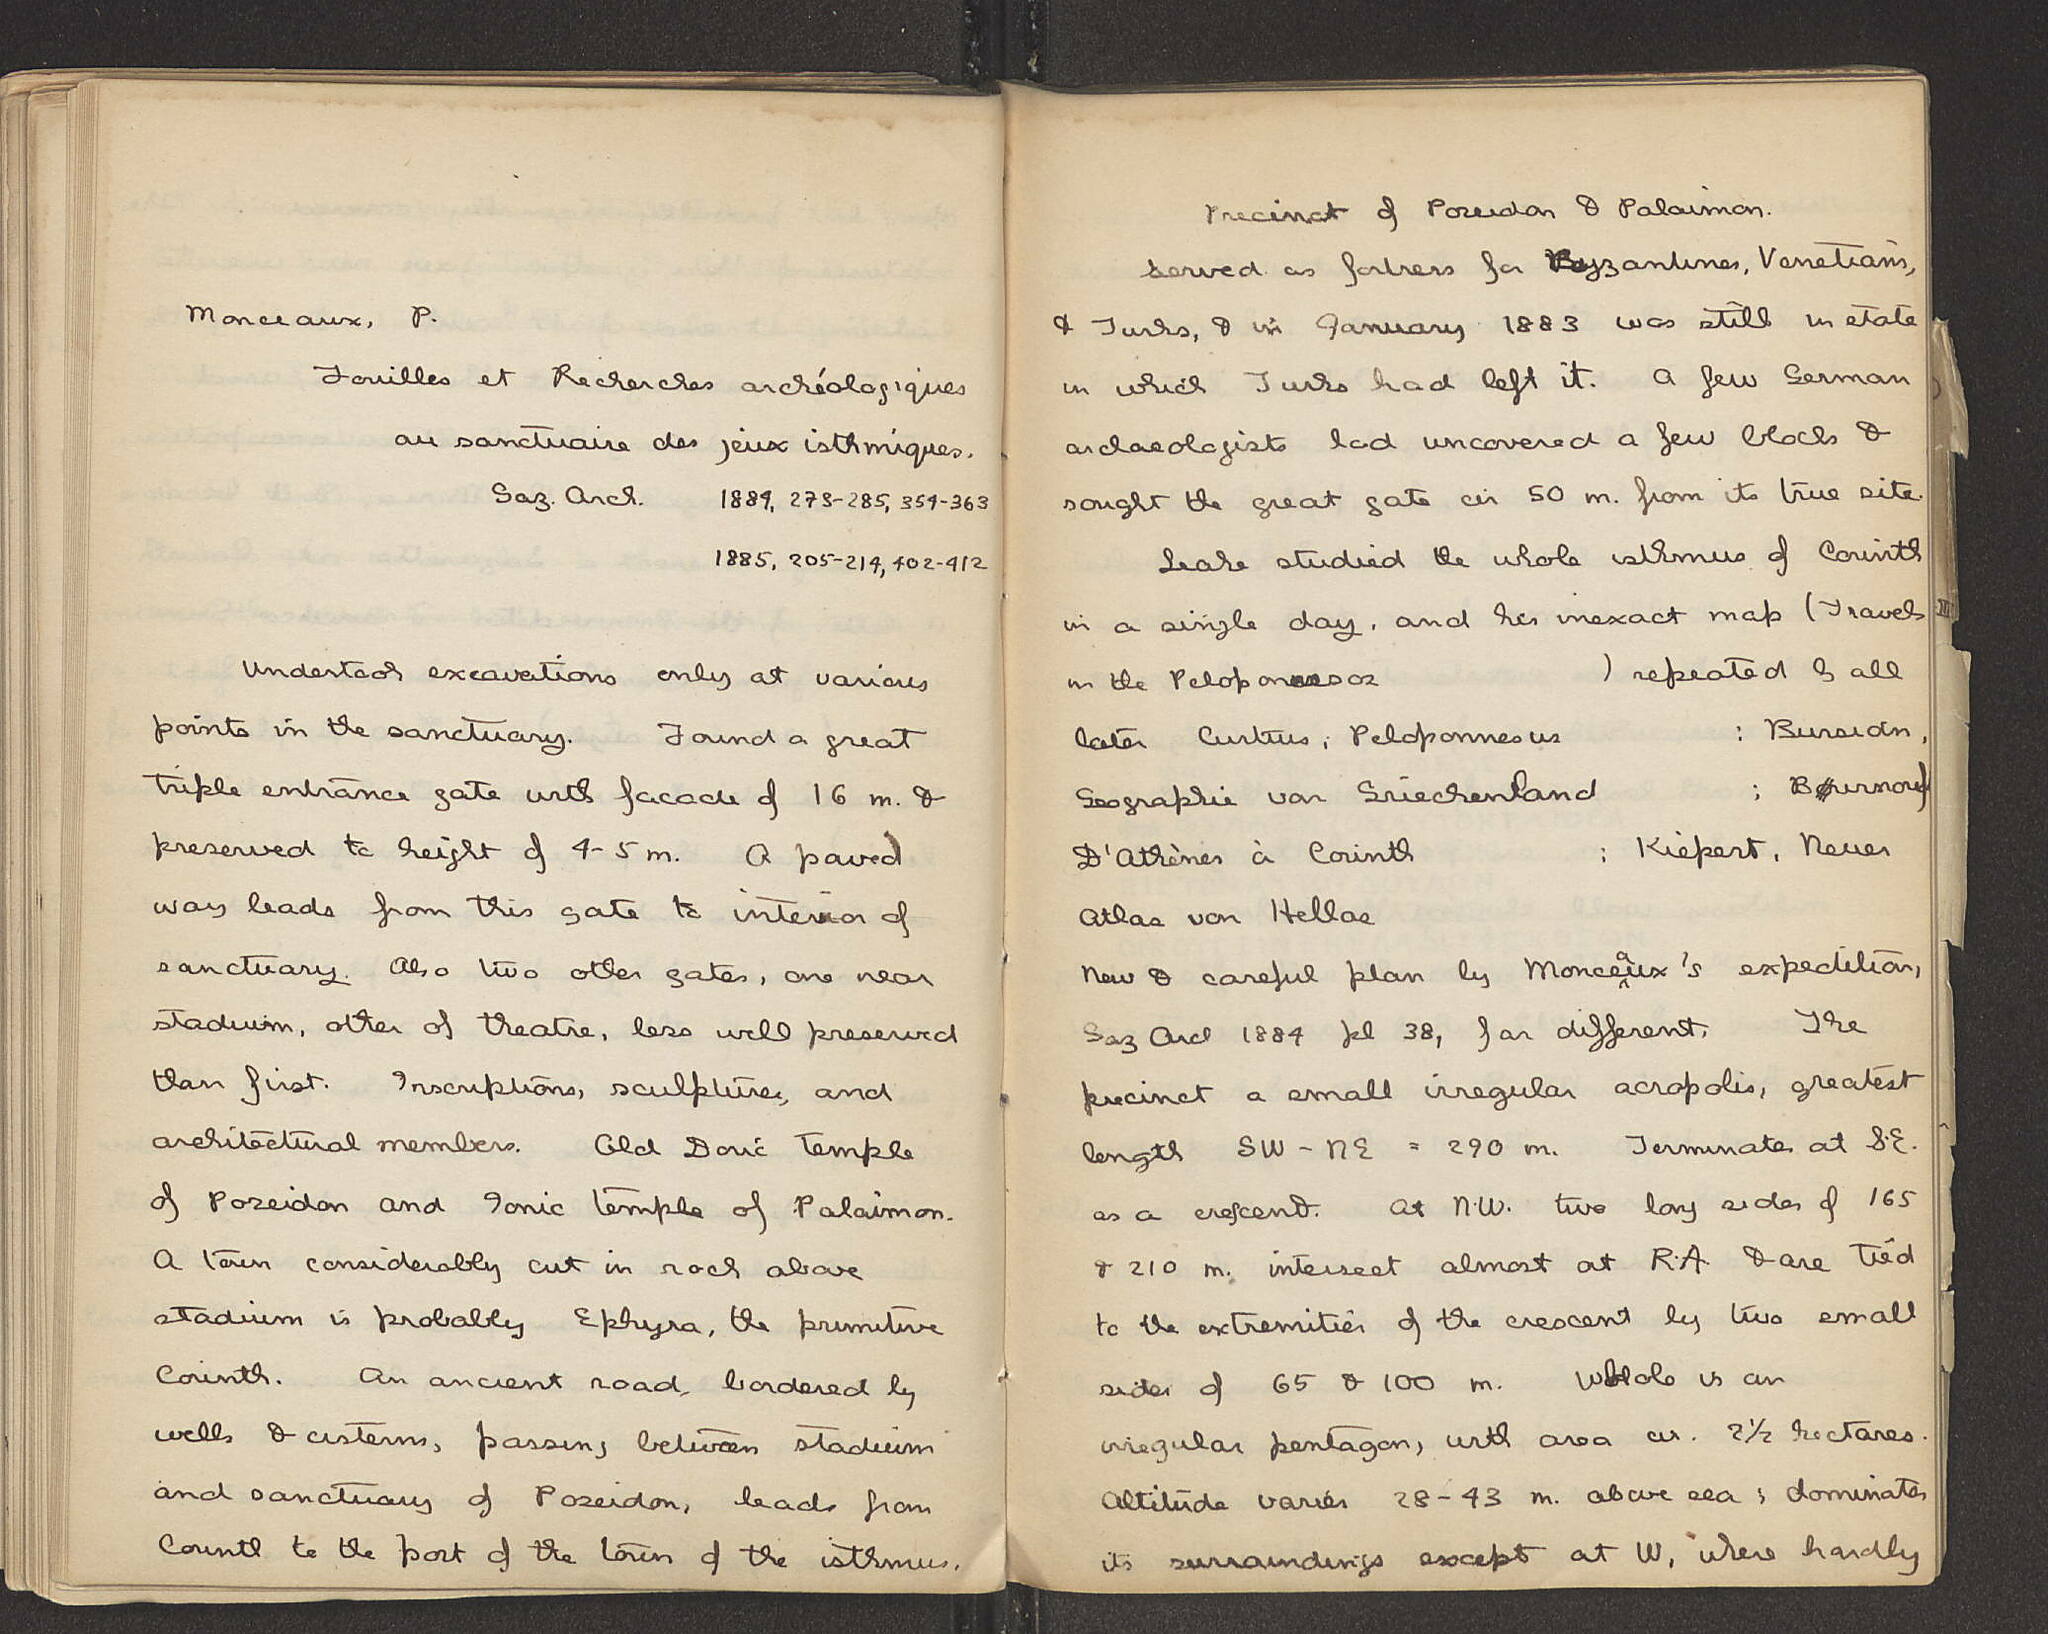 Monceaux, P.
Fouilles et Recherches archéologiques
au sanctuaire des jeux isthmiques.
Gaz. Arch. 1884, 273-285, 354-363
1885, 205-214, 402-412
Undertook excavations only at various
points in the sanctuary. Found a great
triple entrance gate with facade of 16 m. &
preserved to height of 4-5 m. A paved
way leads from this gate to interior of
sanctuary. Also two other gates, one near
stadium, other of theatre, less well preserved
than first. Inscriptions, sculptures, and
architectural members. Old Doric temple
of Poseidon and Ionic temple of Palaimon.
A town considerably cut in rock above
stadium is probably Ephyra, the primitive
Corinth. An ancient road, bordered by
wells & cisterns, passing between stadium
and sanctuary of Poseidon, leads from
Corinth to the port of the town of the isthmus.
Precinct of Poseidon & Palaimon.
Served as fortress for Byzantines, Venetians,
& Turks, & in January 1883 was still in state
in which Turks had left it. A few German
archaeologists had uncovered a few blocks &
sought the great gate cir 50 m. from its true site.
Leake studied the whole isthmus of Corinth
in a single day, and his inexact map (Travels
in the Peloponnesos ) repeated by all
later Curtius, Peloponnesus ; Bursian,
Geographie von Griechenland ; Bournouf
D'Athènes à Corinth ; Kiepert, Neuer
Atlas von Hellas
New & careful plan by Monceaux's expedition,
Gaz Arch 1884 pl 38, far different. The
precinct a small irregular acropolis, greatest
length SW - NE = 290 m. Terminates at S.E.
as a crescent. At N.W. two long sides of 165
& 210 m. intersect almost at R.A. & are tied
to the extremities of the crescent by two small
sides of 65 & 100 m. Whole is an
irregular pentagon, with area cir. 2½ hectares.
Altitude varies 28-43 m. above sea ; dominates
its surroundings except at W, where hardly